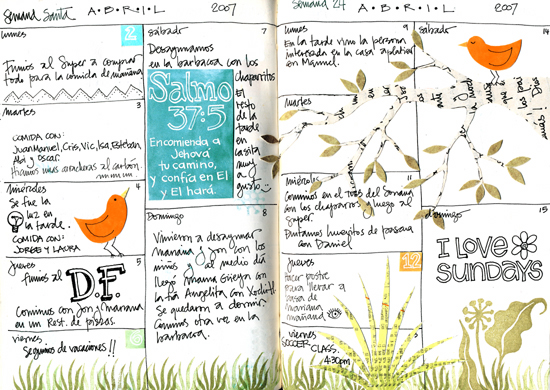 Semana Santa A·B·R·I·L 2007
lunes 2
Fuimos al Super a comprar
todo para la comida de mañana
martes 3
COMIDA CON:
Juan Manuel, Cris, Vic, Ica, Esteban,
Abi y Oscar.
miércoles 4
Se fue la
luz en
la tarde.
COMIDA CON:
JORGE Y LAURA
Jueves 5
fuimos al D.F.
Comimos con Jon y Mariana
en un Rest. de pizzas.
viernes
Seguimos de vacaciones!!
sábado 7
Desayunamos
en la barbacoa con los
chaparritos
El
resto
de la
tarde
en
casita
muy
a
gusto
Salmo
37:5
Encomienda a
Jehová
tu camino,
y confía en El
y El hará.
Domingo 8
Vinieron a desayunar
Mariana y Jon con los
niños y al medio día
llegó
la tía Angelita con Xochitl
Se quedaron a dormir.
Comimos otra vez en la
barbacoa.
Semana 24 A·B·R·I·L 2007
lunes 9
En la tarde vino la persona
interesada en la casa a platicar
con Manuel.
martes
miércoles 11
Comimos en el
con los chaparros y luego al
super.
Pintamos huevitos de pascua
con Daniel
jueves 12
Hacer postre
para llevar a
casa de
Mariana
mañana
viernes
SOCCER
CLASS
4:30pm
sábado 14
domingo 15
I LOVE
SUNDAYS